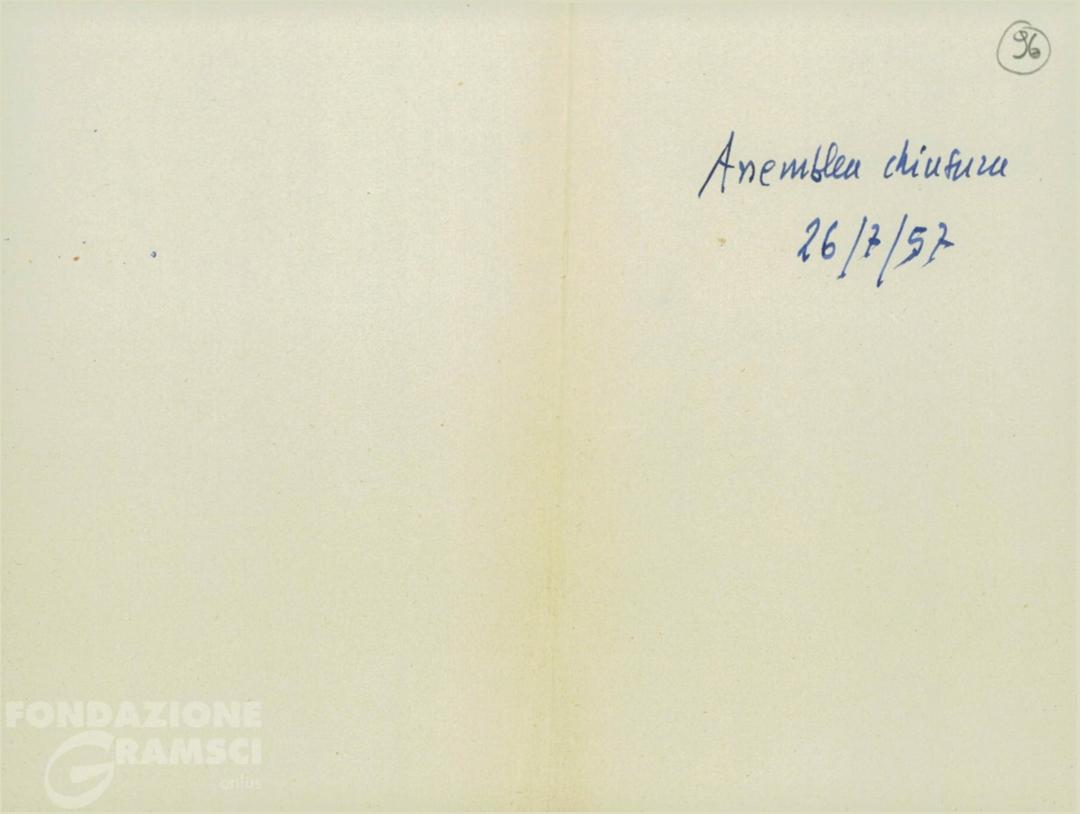 96
Assemblea chiusura
26/7/57
FONDAZIONE
GRAMSCI
onlus